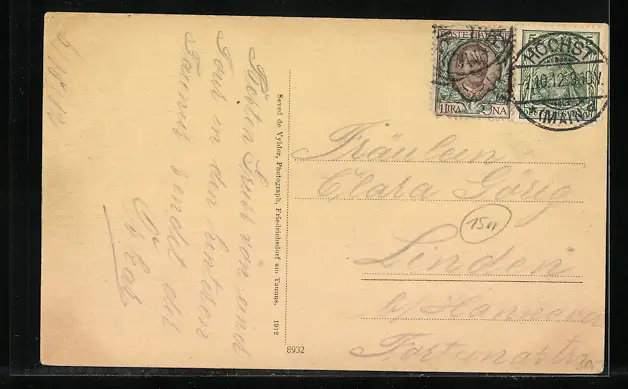 5/10 12
Besten Gruss von einer
Tour in den hinteren
Taunus sendet dir
Oskar
Seved de Vylder, Photograph, Friedrichsdorf am Taunus. 1912
8932
POSTE
1 LIRA UNA
HÖCHST
10.12.9-10V.
(MAIN)
Fräulein
Clara Görig
1511
Linden
b/ Hannover
Fortunastr